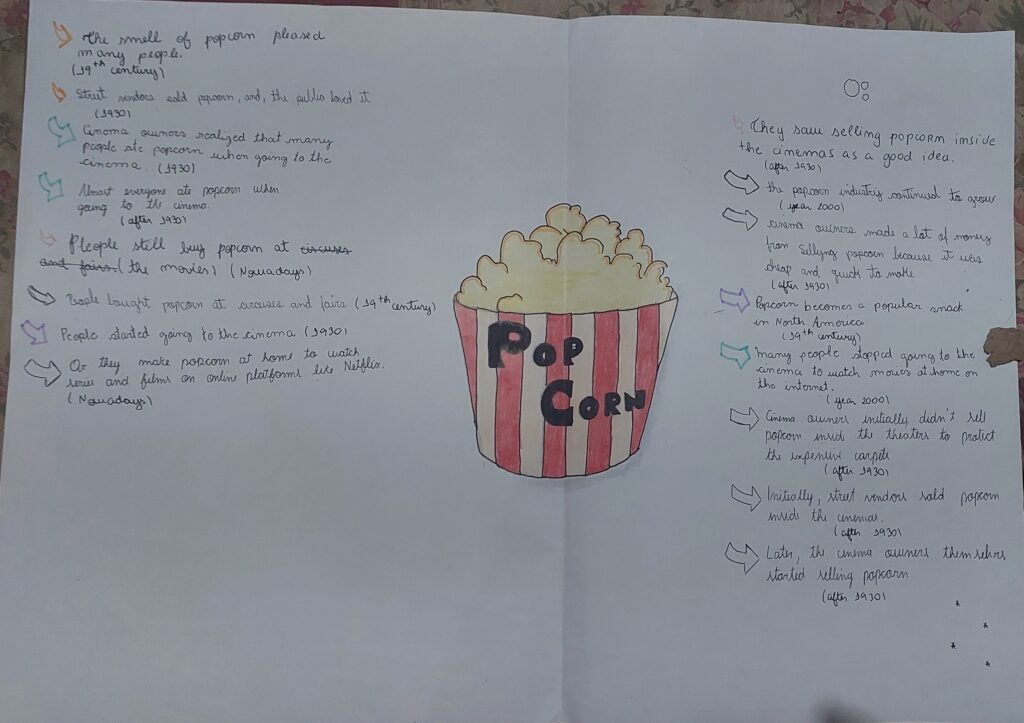 The smell of popcorn pleased
many people.
(19th century)
Street vendors sold popcorn, and, the public loved it
(1930)
Cinema owners realized that many
people ate popcorn when going to the
cinema. (1930)
Almost everyone ate popcorn when
going to the cinema.
(after 1930)
People still buy popcorn at circuses
and fairs (the movies) (Nowadays)
People bought popcorn at circuses and fairs (19th century)
People started going to the cinema (1930)
Or they make popcorn at home to watch
series and films on online platforms like Netflix.
(Nowadays)
POP
CORN
They saw selling popcorn inside
the cinemas as a good idea.
(after 1930)
the popcorn industry continued to grow
(year 2000)
cinema owners made a lot of money
from selling popcorn because it was
cheap and quick to make
(after 1930)
Popcorn becomes a popular snack
in North America
(19th century)
Many people stopped going to the
cinema to watch movies at home on
the internet.
(year 2000)
Cinema owners initially didn't sell
popcorn inside the theaters to protect
the expensive carpets
(after 1930)
Initially, street vendors sold popcorn
inside the cinemas.
(after 1930)
Later, the cinema owners themselves
started selling popcorn
(after 1930)